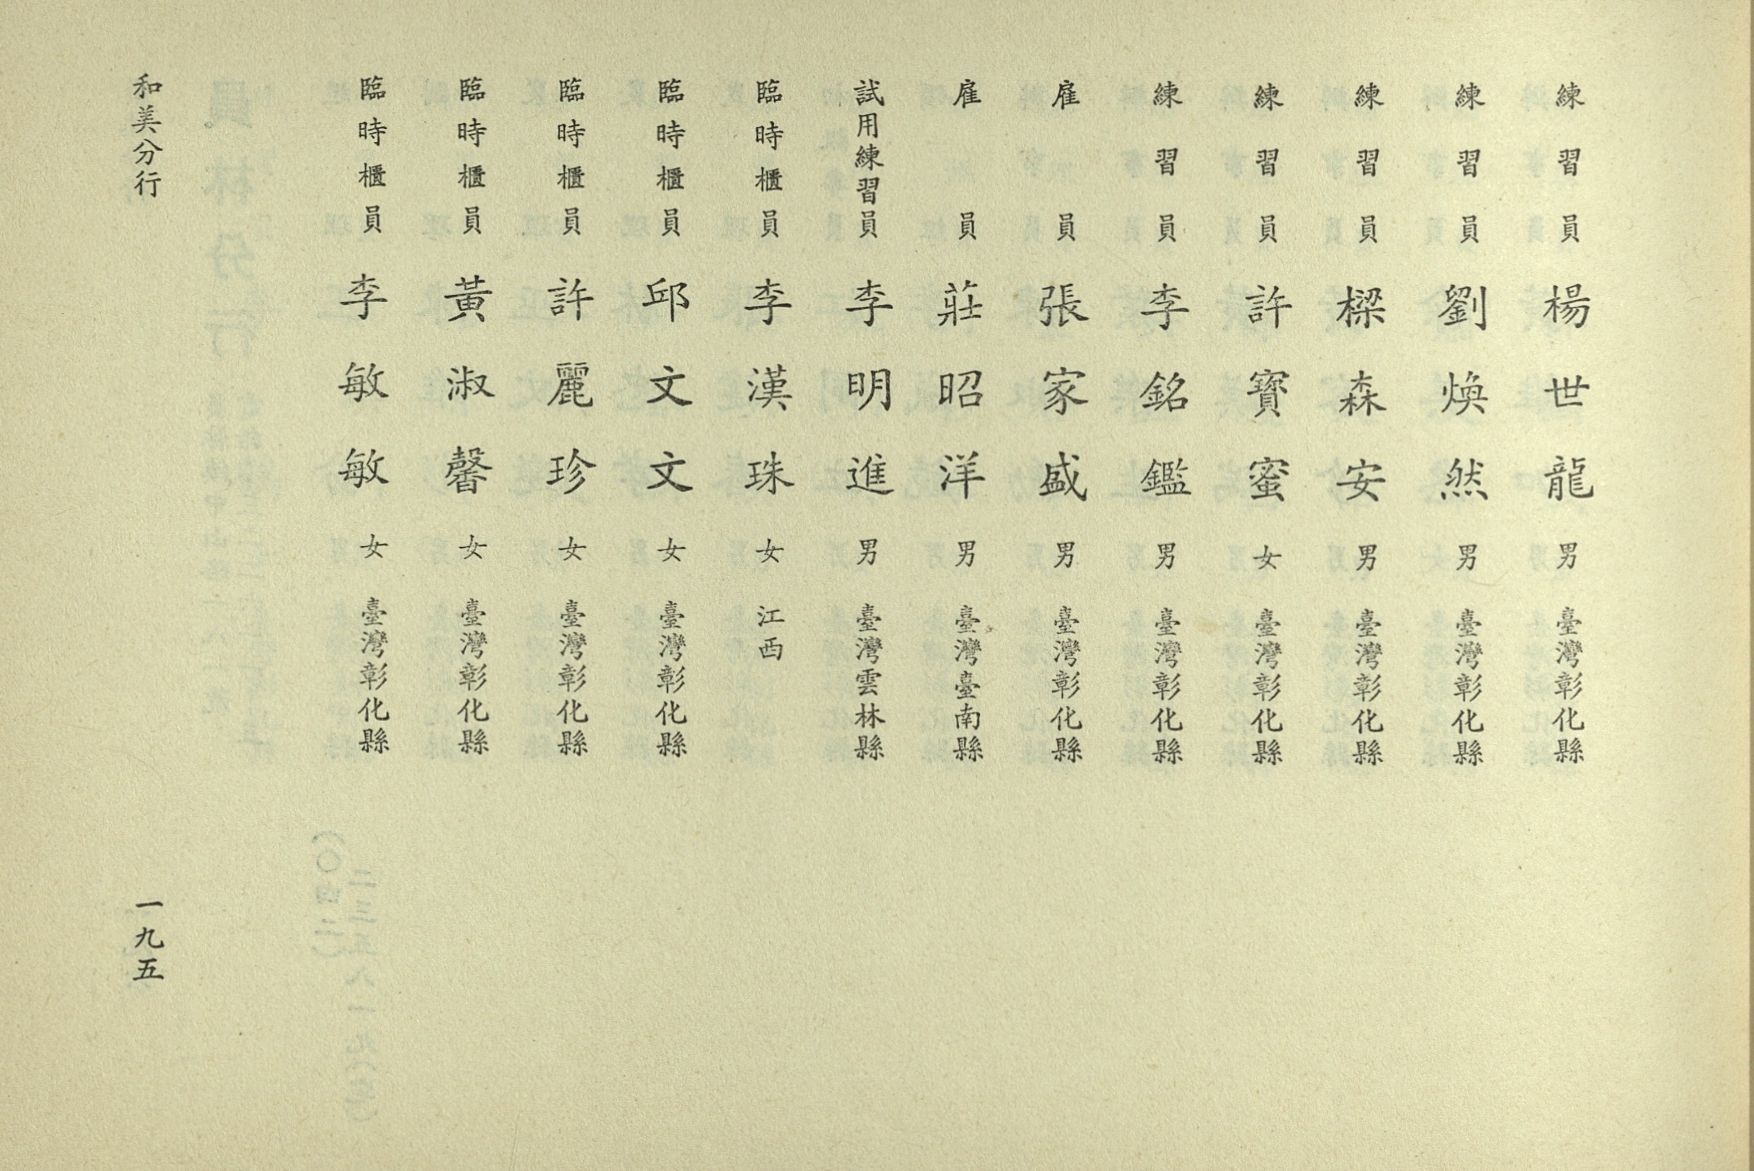 練習員 楊世龍 男 臺灣彰化縣
練習員 劉煥然 男 臺灣彰化縣
練習員 樑森安 男 臺灣彰化縣
練習員 許寶蜜 女 臺灣彰化縣
練習員 李銘鑑 男 臺灣彰化縣
雇員 張家盛 男 臺灣彰化縣
雇員 莊昭洋 男 臺灣臺南縣
試用練習員 李明進 男 臺灣雲林縣
臨時櫃員 李漢珠 女 江西
臨時櫃員 邱文文 女 臺灣彰化縣
臨時櫃員 許麗珍 女 臺灣彰化縣
臨時櫃員 黃淑馨 女 臺灣彰化縣
臨時櫃員 李敏敏 女 臺灣彰化縣
和美分行
一九五